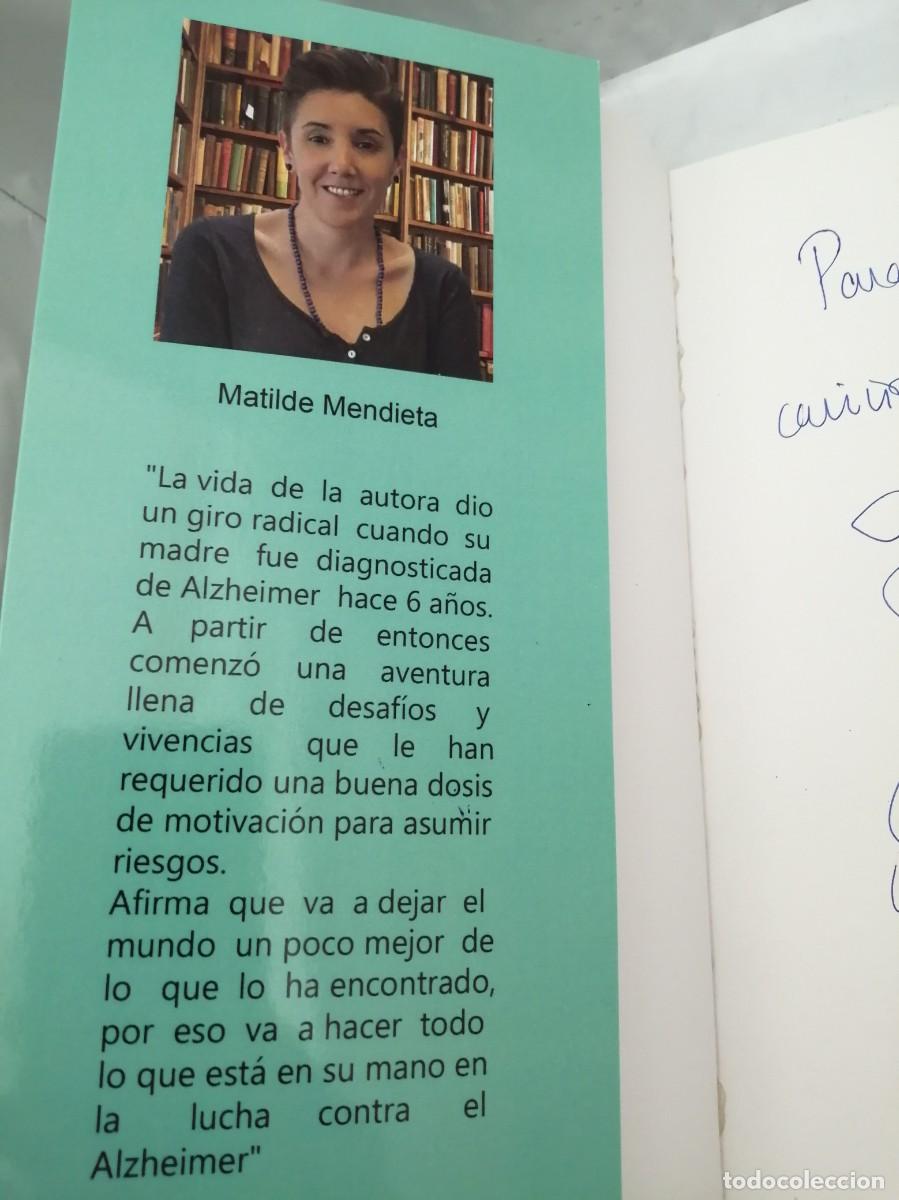 Matilde Mendieta
"La vida de la autora dio
un giro radical cuando su
madre fue diagnosticada
de Alzheimer hace 6 años.
A partir de entonces
comenzó una aventura
llena de desafíos y
vivencias que le han
requerido una buena dosis
de motivación para asumir
riesgos.
Afirma que va a dejar el
mundo un poco mejor de
lo que lo ha encontrado,
por eso va a hacer todo
lo que está en su mano en
la lucha contra el
Alzheimer"
Para
todocoleccion